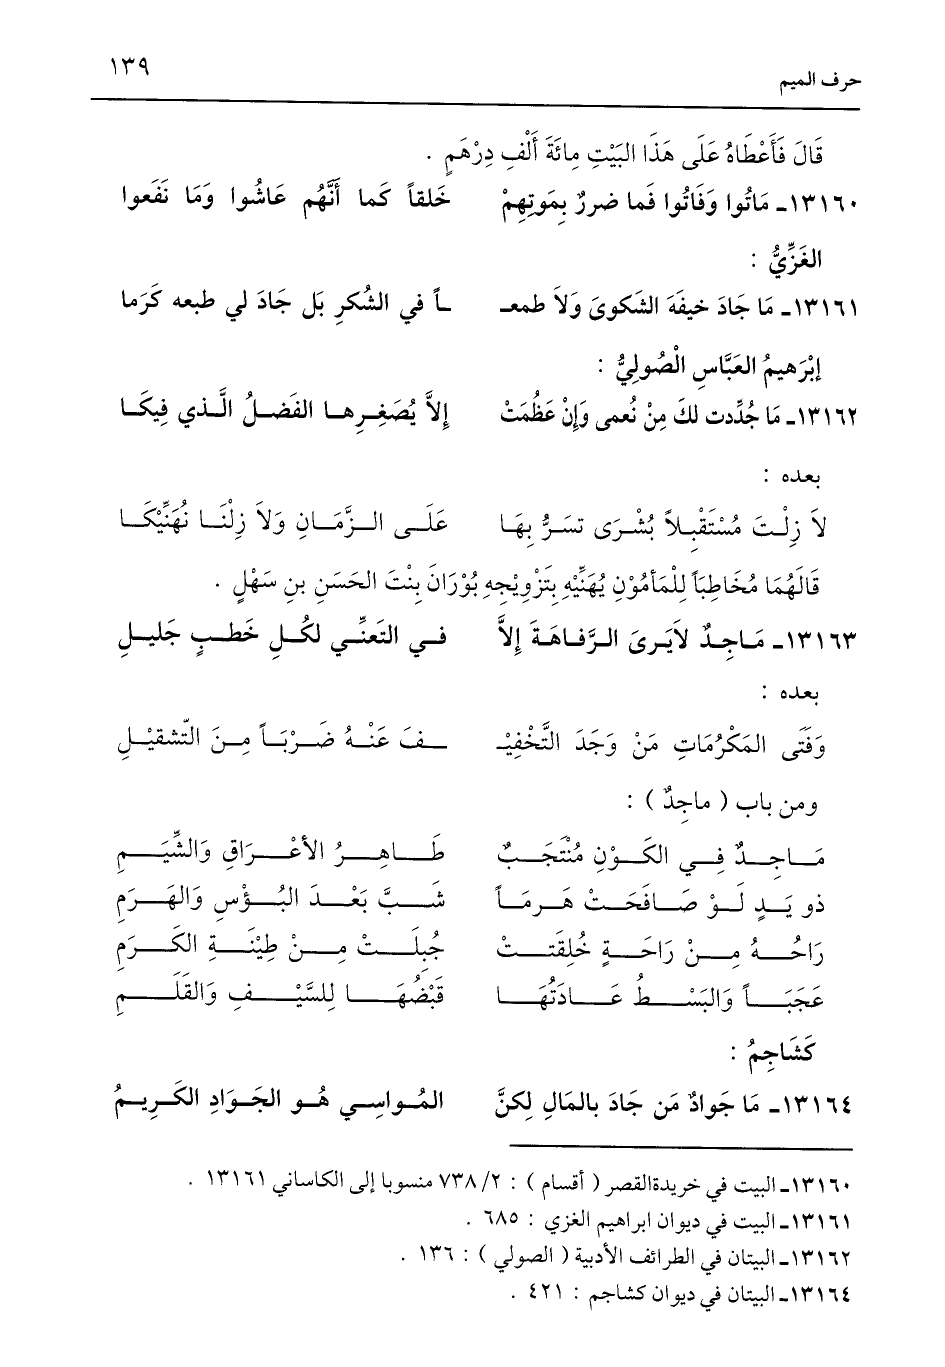 ١٣٩
حرف الميم
قَالَ فَأَعْطَاهُ عَلَى هَذَا البَيْتِ مِائَةَ أَلْفِ دِرْهَمٍ .
١٣١٦٠ـ مَاتُوا وَفَاتُوا فَما ضررٌ بِمَوتِهِمْ خَلقاً كَما أَنَّهُم عَاشُوا وَمَا نَفَعوا
الغَزِّيُّ :
١٣١٦١ـ مَا جَادَ خيفَةَ الشَكوىَ وَلاَ طمعـ ـاً في الشُكرِ بَل جَادَ لي طبعه كَرَما
إبْرَهيمُ العَبَّاسِ الْصُولِيُّ :
١٣١٦٢ـ مَا جُدِّدت لكَ مِنْ نُعمى وَإنْ عَظُمَتْ إلاَّ يُصَغِـرِهـا الفَضـلُ الَّـذي فِيكَـا
بعده :
لاَ زِلْـتَ مُسْتَقْبِـلاً بُشْـرَى تسَـرُّ بِهَـا عَلَـى الـزَّمَـانِ وَلاَ زِلْنَـا نُهَنِّيْكَـا
قَالَهُمَا مُخَاطِبَاً لِلْمَأمُوْنِ يُهَنِّيْهِ بِتَزْوِيْجِهِ بُوْرَانَ بِنْتَ الحَسَنِ بنِ سَهْلٍ .
١٣١٦٣ـ مَـاجِـدٌ لاَيَـرىَ الـرَّفـاهَـةَ إلاَّ فـي التَعنِّـي لكُـلِ خَطـبٍ جَليـلِ
بعده :
وَفَتَى المَكْرُمَاتِ مَنْ وَجَدَ التَّخْفِيْـ ـفَ عَنْـهُ ضَـرْبَـاً مِـنَ التّـثقيْـلِ
ومن باب ( ماجِدٌ ) :
مَـــاجِـــدٌ فـــي الكَـــوْنِ مُنْتَجَـــبٌ طَـــاهِـــرُ الأعْـــرَاقِ وَالشِّيَـــمِ
ذو يَـــدٍ لَـــوْ صَـــافَحَـــتْ هَـــرِمَـــاً شَـــبَّ بَعْـــدَ البُـــؤْسِ وَالهَـــرَمِ
رَاحُـــهُ مِـــنْ رَاحَـــةٍ خُلِقَتـــتْ جُبلَـــتْ مِـــنْ طِيْنَـــةِ الكَـــرَمِ
عَجَبَـــاً وَالبَسْـــطُ عَـــادَتُهَـــا قَبْضُهَـــا لِلسَّيْـــفِ وَالقَلَـــمِ
كَشَاجِمُ :
١٣١٦٤ـ مَا جَوادٌ مَن جَادَ بالمَالِ لِكنَّ المُـواسِـي هُـو الجَـوَادِ الكَـرِيـمُ
١٣١٦٠ـ البيت في خريدةالقصر ( أقسام ) : ٧٣٨/٢ منسوبا إلى الكاساني ١٣١٦١ .
١٣١٦١ـ البيت في ديوان ابراهيم الغزي : ٦٨٥ .
١٣١٦٢ـ البيتان في الطرائف الأدبية ( الصولي ) : ١٣٦ .
١٣١٦٤ـ البيتان في ديوان كشاجم : ٤٢١ .